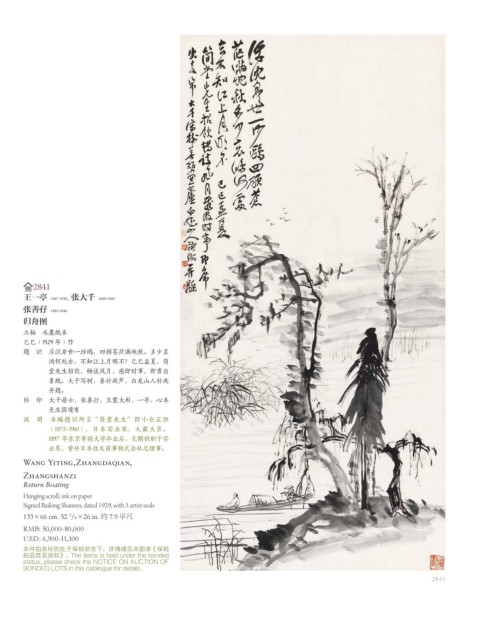 2841
王一亭 1867-1938、张大千 1899-1983
张善孖 1882-1940
归舟图
立轴 水墨纸本
己巳(1929年)作
题 识 浮沉身世一沙鸥,四顾苍茫满地秋。多少哀鸿何处去,不知江上月明不?己巳孟夏,简堂先生招饮,畅谈风月,感即时事,即席出素纸,大千写树,善孖画芦,白龙山人补成并题。
钤 印 大千居士、张善孖、王震大利、一亭、心本无生因境有
说 明 本幅题识所言“简堂先生”即小仓正恒
(1875-1961),日本实业家,大藏大臣。
1897年东京帝国大学毕业后,长期供职于实
业界,曾任日本住友商事株式会社总理事。
WANG YITING,ZHANGDAQIAN,
ZHANGSHANZI
Return Boating
Hanging scroll; ink on paper
Signed Bailong Shanren, dated 1929, with 5 artist seals
133×66 cm. 52 3/8×26 in. 约7.9平尺
RMB: 50,000-80,000
USD: 6,900-11,100
本件拍卖标的处于保税状态下,详情请见本图录《保税
拍品竞买须知》。The items is held under the bonded
status, please check the NOTICE ON AUCTION OF
BONDED LOTS in this catalogue for details.
浮沈身世一沙鸥四顾苍
茫满地秋多少哀鸿何处
去不知江上月明不 己巳孟夏
2841